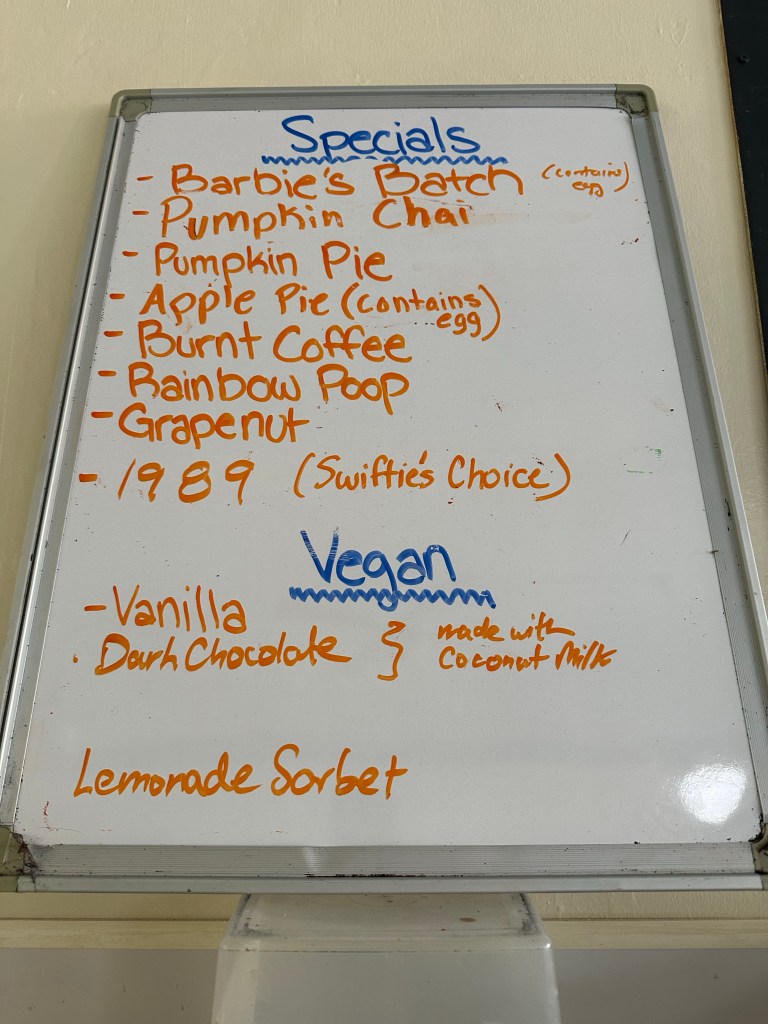 Specials
- Barbie's Batch (contains egg)
- Pumpkin Chai
- Pumpkin Pie
- Apple Pie (contains egg)
- Burnt Coffee
- Rainbow Poop
- Grapenut
- 1989 (Swiftie's Choice)
Vegan
- Vanilla
· Dark Chocolate } made with Coconut Milk
Lemonade Sorbet